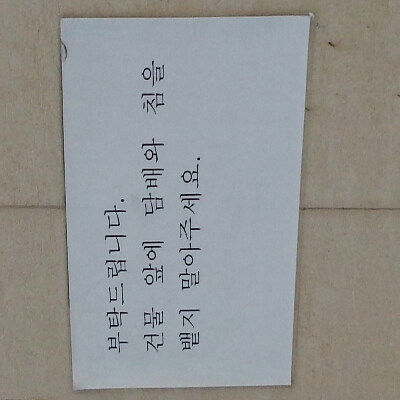 부탁드립니다.
건물 앞에 담배와 침을
뱉지 말아주세요.